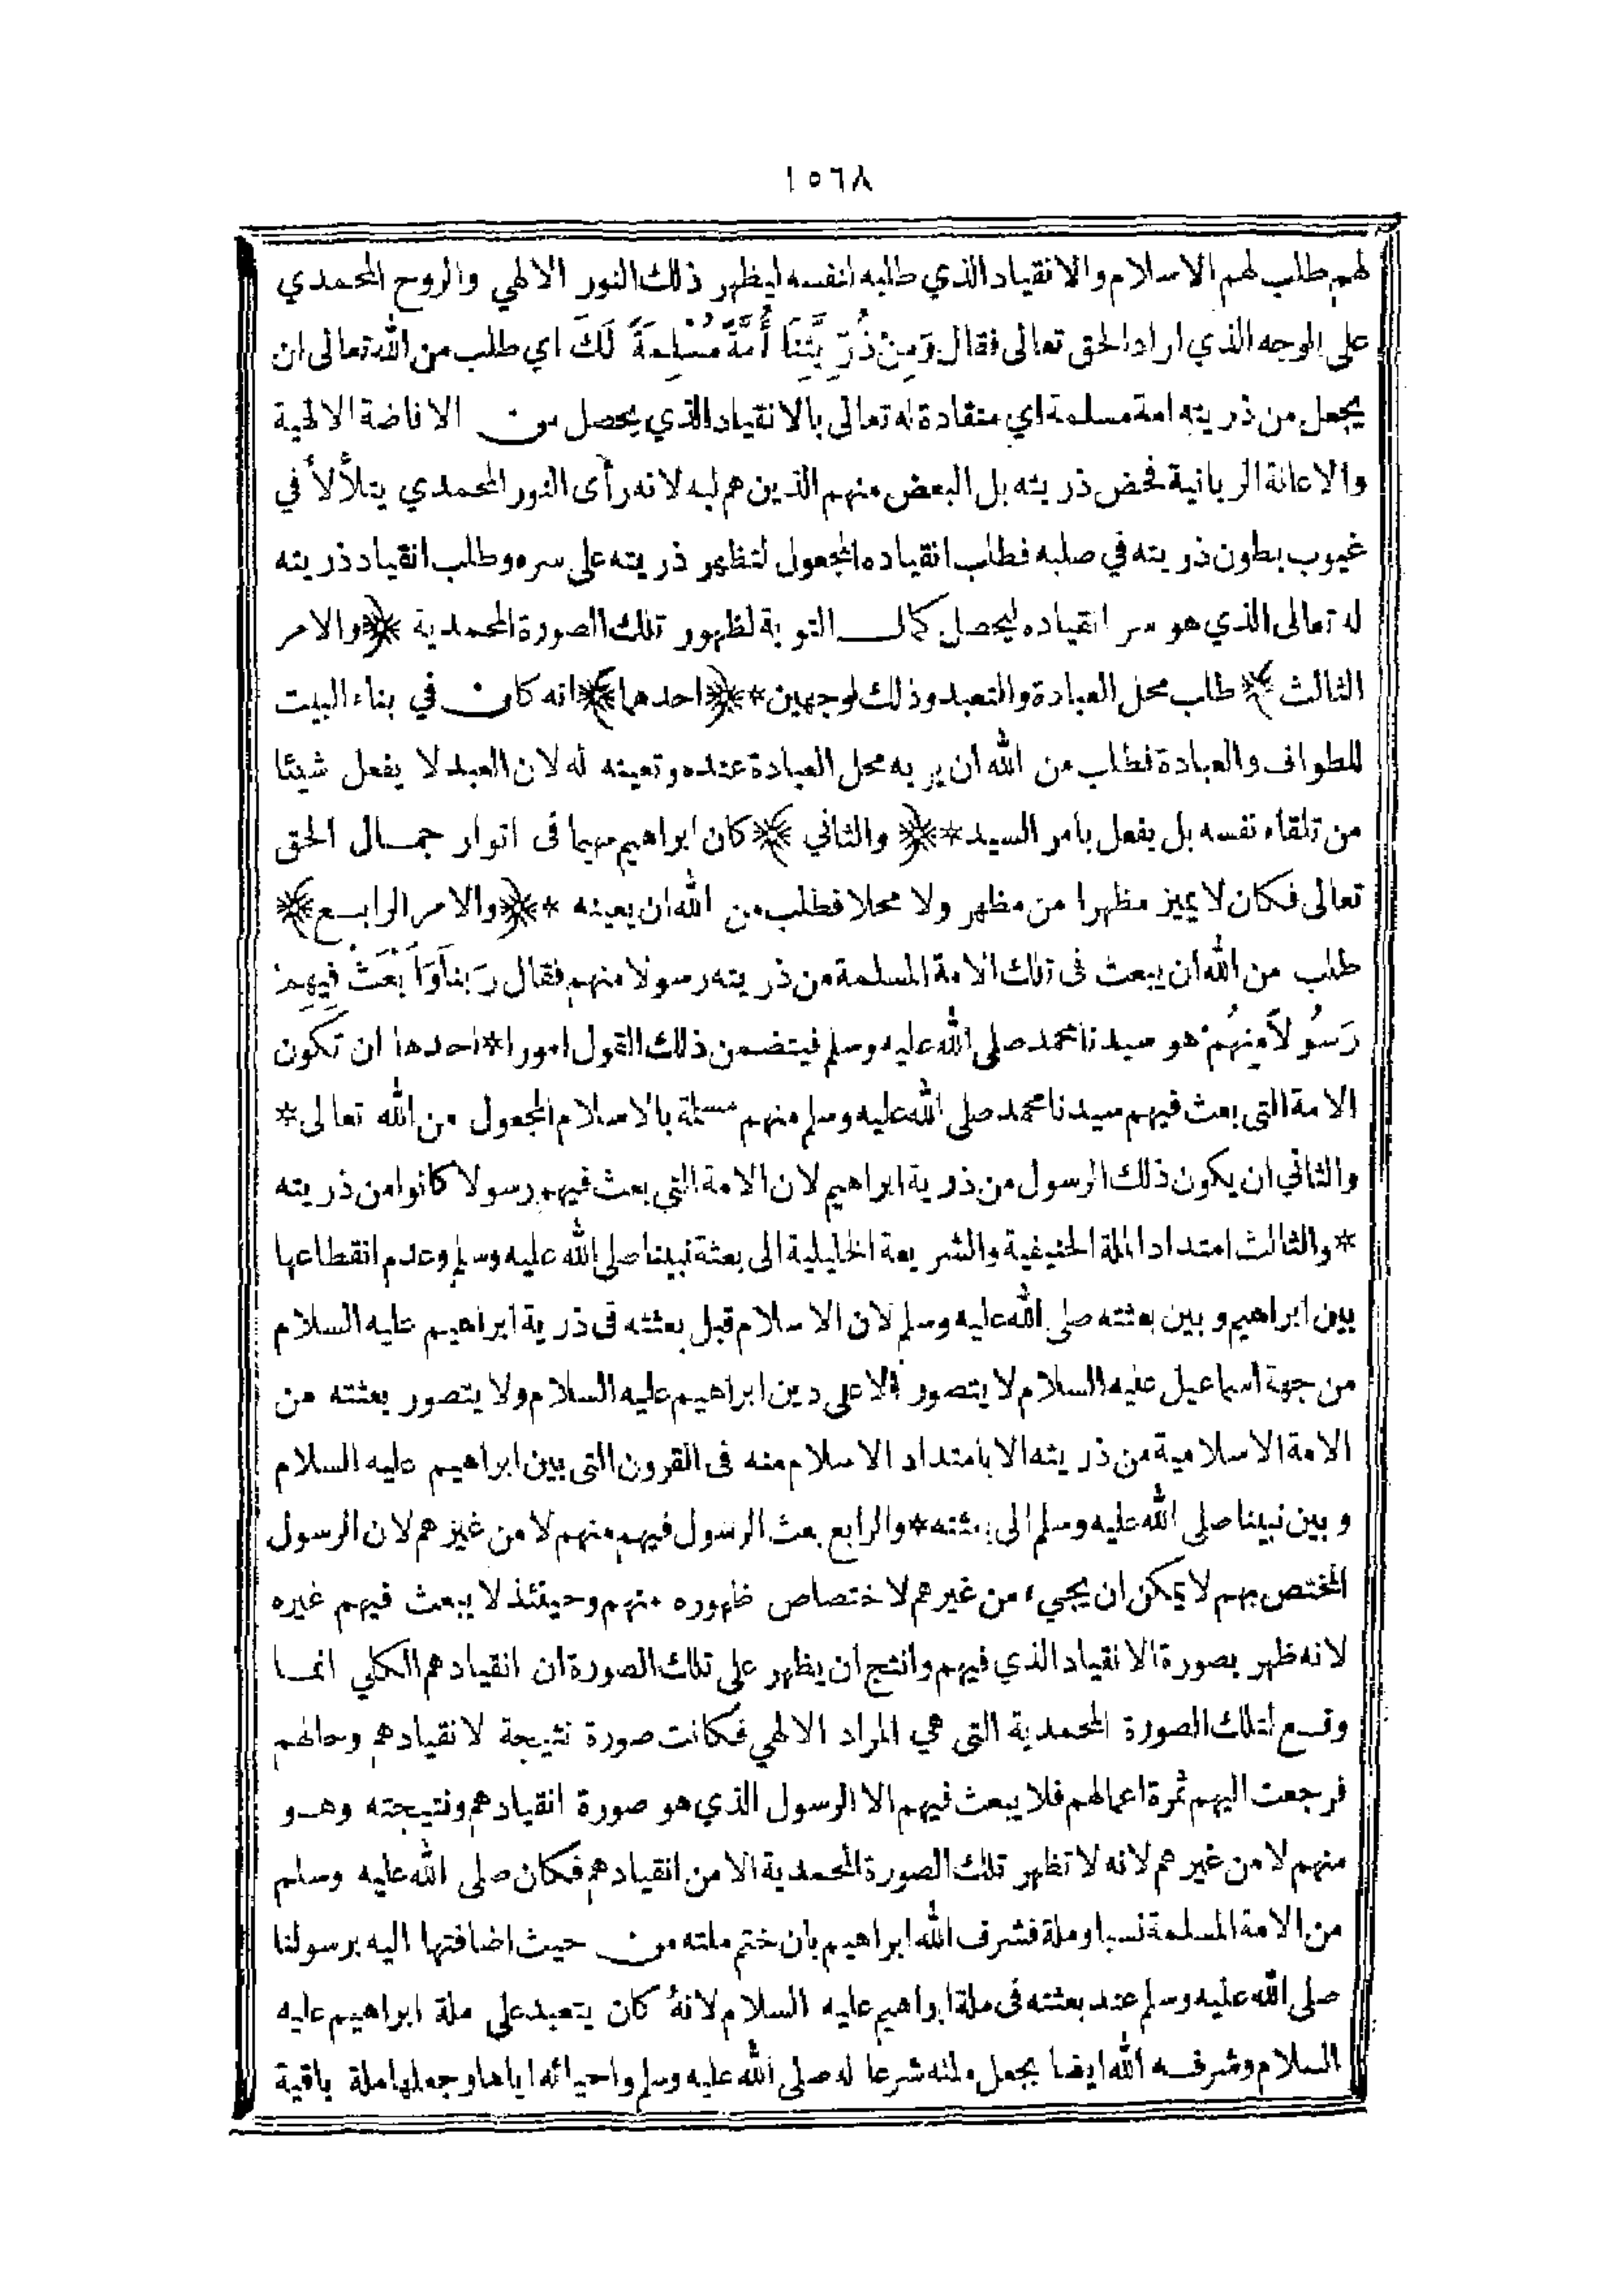 ١٥٦٨
لهم طلب لهم الاسلام والانقياد الذي طلبه لنفسه ليظهر ذلك النور الالهي والروح المحمدي
على الوجه الذي اراد الحق تعالى فقال وَمِنْ ذُرِّيَّتِنَا أُمَّةً مُسْلِمَةً لَكَ اي طلب من الله تعالى ان
يجعل من ذريته امة مسلمة اي منقادة له تعالى بالانقياد الذي يحصل من الافاضة الالهية
والاعانة الربانية لمحض ذريته بل البعض منهم الذين هم لبه لانه رأى النور المحمدي يتلألأ في
غيوب بطون ذريته في صلبه فطلب انقياده المجعول لتظهر ذريته على سره وطلب انقياد ذريته
له تعالى الذي هو سر انقياده ليحصل كمال التوبة لظهور تلك الصورة المحمدية ﴿والامر
الثالث﴾ طلب محل العبادة والتعبد وذلك لوجهين * ﴿احدهما﴾ انه كان في بناء البيت
للطواف والعبادة فطلب من الله ان يريه محل العبادة عنده وتعينه له لان العبد لا يفعل شيئا
من تلقاء نفسه بل يفعل بامر السيد * ﴿والثاني﴾ كان ابراهيم مهيما فى انوار جمال الحق
تعالى فكان لا يميز مظهرا من مظهر ولا محلا فطلب من الله ان يعينه * ﴿والامر الرابع﴾
طلب من الله ان يبعث فى تلك الامة المسلمة من ذريته رسولا منهم فقال رَبَنَا وَابْعَثْ فِيهِمْ
رَسُولًا مِنْهُمْ هو سيدنا محمد صلى الله عليه وسلم فيتضمن ذلك القول امورا * احدها ان تكون
الامة التى بعث فيهم سيدنا محمد صلى الله عليه وسلم منهم مسلمة بالاسلام المجعول من الله تعالى *
والثاني ان يكون ذلك الرسول من ذرية ابراهيم لان الامة التي بعث فيهم رسولا كانوا من ذريته
* والثالث امتداد الملة الحنيفية والشريعة الخليلية الى بعثة نبينا صلى الله عليه وسلم وعدم انقطاعها
بين ابراهيم وبين بعثته صلى الله عليه وسلم لان الاسلام قبل بعثته فى ذرية ابراهيم عليه السلام
من جهة اسماعيل عليه السلام لا يتصور الا على دين ابراهيم عليه السلام ولا يتصور بعثته من
الامة الاسلامية من ذريته الا بامتداد الاسلام منه فى القرون التى بين ابراهيم عليه السلام
وبين نبينا صلى الله عليه وسلم الى بعثته * والرابع بعث الرسول فيهم منهم لا من غيرهم لان الرسول
المختص بهم لا يمكن ان يجيء من غيرهم لاختصاص ظهوره منهم وحينئذ لا يبعث فيهم غيره
لانه ظهر بصورة الانقياد الذي فيهم وانتج ان يظهر على تلك الصورة ان انقيادهم الكلي انما
وقع لتلك الصورة المحمدية التى هي المراد الالهي فكانت صورة نتيجة لانقيادهم وحالهم
فرجعت اليهم ثمرة اعمالهم فلا يبعث فيهم الا الرسول الذي هو صورة انقيادهم ونتيجته وهو
منهم لا من غيرهم لانه لا تظهر تلك الصورة المحمدية الا من انقيادهم فكان صلى الله عليه وسلم
من الامة المسلمة نسبا وملة فشرف الله ابراهيم بان ختم ملته من حيث اضافتها اليه برسولنا
صلى الله عليه وسلم عند بعثته فى ملة ابراهيم عليه السلام لانه كان يتعبد على ملة ابراهيم عليه
السلام وشرفه الله ايضا بجعل ملته شرعا له صلى الله عليه وسلم واحيائه اياها وجعلها ملة باقية